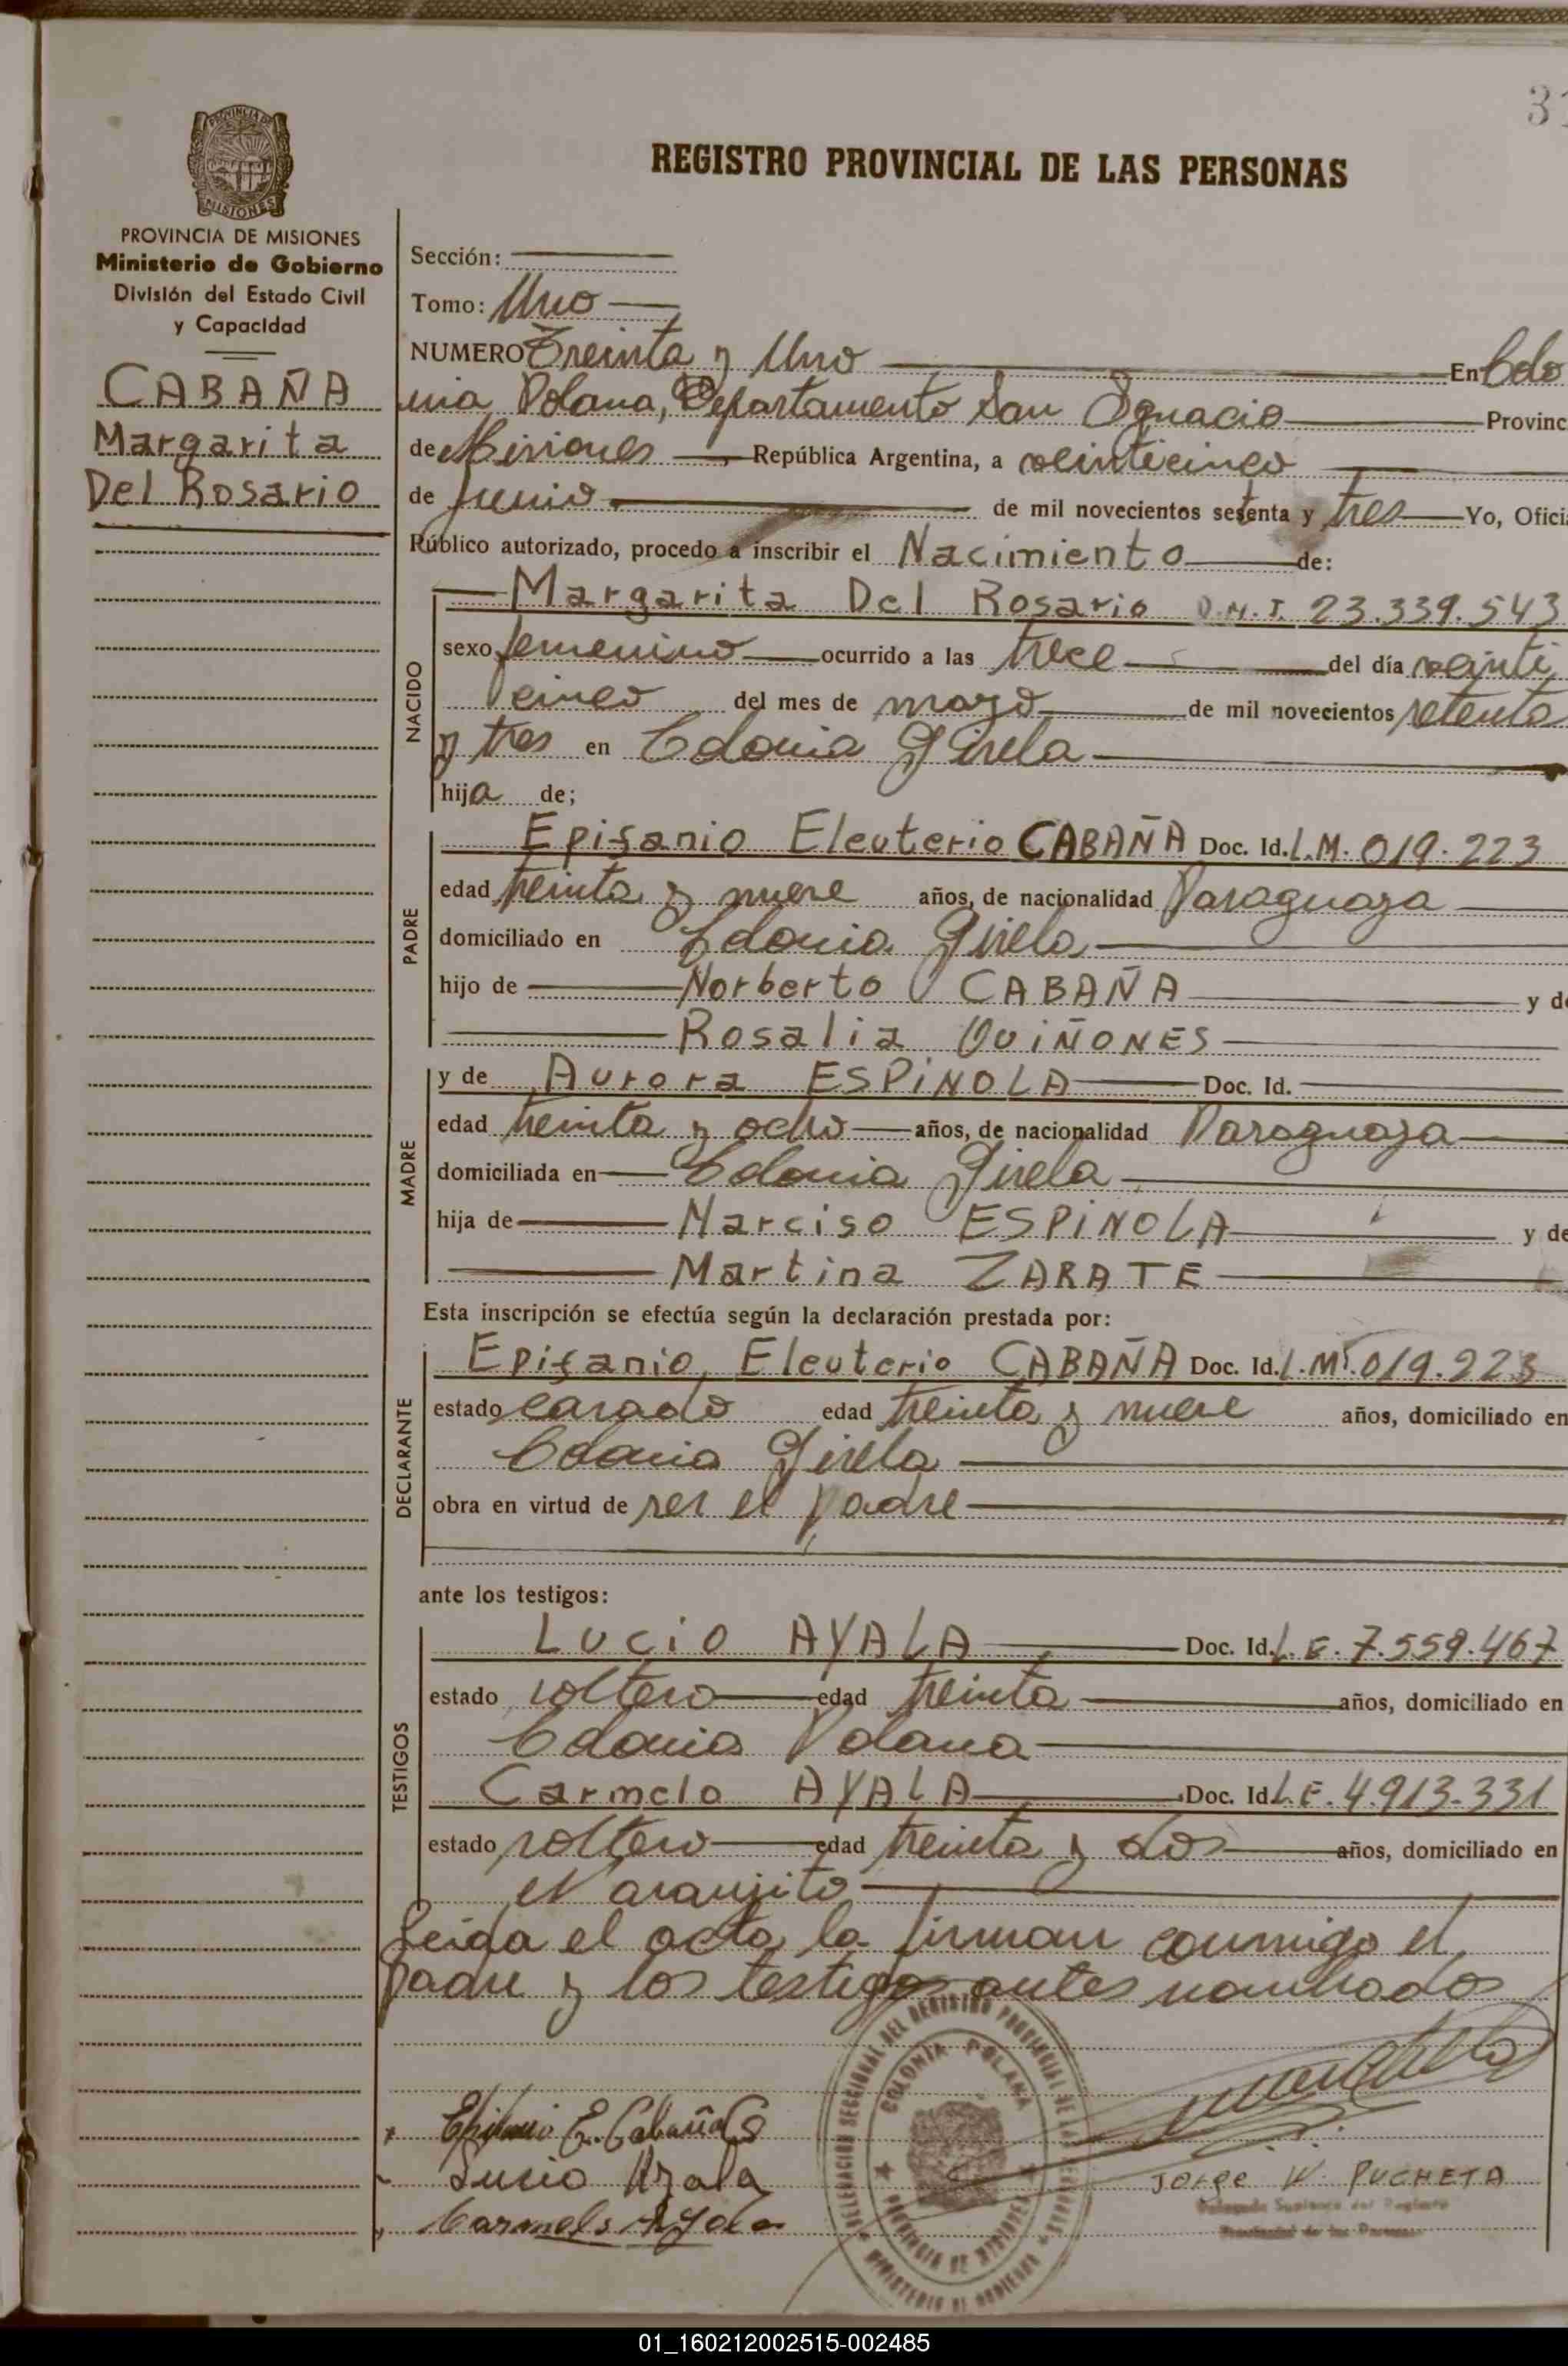 31
PROVINCIA DE
MISIONES
REGISTRO PROVINCIAL DE LAS PERSONAS
PROVINCIA DE MISIONES
Ministerio de Gobierno
División del Estado Civil
y Capacidad
CABAÑA
Margarita
Del Rosario
Sección:
Tomo: Uno
NUMERO Treinta y Uno En Colo
nia Polana, Departamento San Ignacio Provinc
de Misiones República Argentina, a veinticinco
de Junio de mil novecientos setenta y tres Yo, Ofici
Público autorizado, procedo a inscribir el Nacimiento de:
NACIDO
Margarita Del Rosario D.N.I. 23.339.543
sexo femenino ocurrido a las trece del día veinti
cinco del mes de mayo de mil novecientos setenta
y tres en Colonia Gisela
hija de;
PADRE
Epifanio Eleuterio CABAÑA Doc. Id. L.M. 019.223
edad treinta y nueve años, de nacionalidad Paraguaya
domiciliado en Colonia Gisela
hijo de Norberto CABAÑA y de
Rosalia QUIÑONES
MADRE
y de Aurora ESPINOLA Doc. Id.
edad treinta y ocho años, de nacionalidad Paraguaya
domiciliada en Colonia Gisela
hija de Narciso ESPINOLA y de
Martina ZARATE
Esta inscripción se efectúa según la declaración prestada por:
DECLARANTE
Epifanio Eleuterio CABAÑA Doc. Id. L.M. 019.223
estado casado edad treinta y nueve años, domiciliado en
Colonia Gisela
obra en virtud de ser el padre
ante los testigos:
TESTIGOS
Lucio AYALA Doc. Id. L.E. 7.559.467
estado soltero edad treinta años, domiciliado en
Colonia Polana
Carmelo AYALA Doc. Id. L.E. 4.913.331
estado soltero edad treinta y dos años, domiciliado en
el Naranjito
Leida el acta la firman conmigo el
padre y los testigos antes nombrados
Epifanio E. Cabaña
Lucio Ayala
Carmelo Ayala
COLONIA POLANA
PROVINCIA DE MISIONES
MINISTERIO DE GOBIERNO
JORGE W. PUCHETA
Delegado Suplente del Registro
Provincial de las Personas
01_160212002515-002485